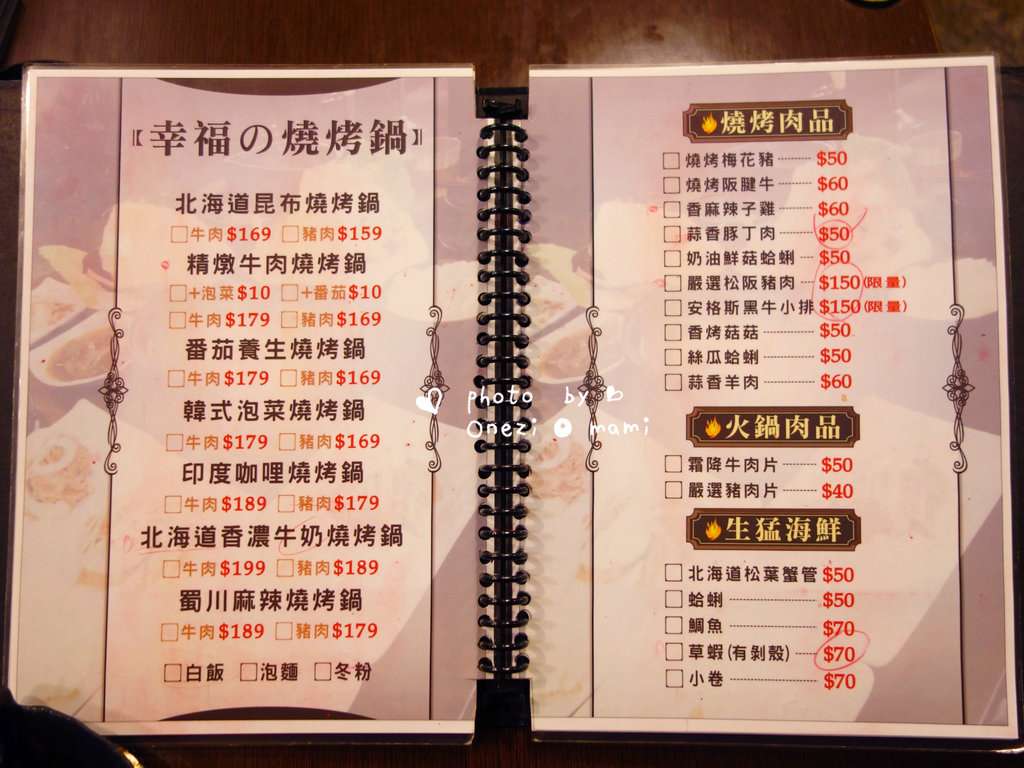 【幸福の燒烤鍋】
北海道昆布燒烤鍋
□牛肉$169 □豬肉$159
精燉牛肉燒烤鍋
□+泡菜$10 □+番茄$10
□牛肉$179 □豬肉$169
番茄養生燒烤鍋
□牛肉$179 □豬肉$169
韓式泡菜燒烤鍋
□牛肉$179 □豬肉$169
印度咖哩燒烤鍋
□牛肉$189 □豬肉$179
北海道香濃牛奶燒烤鍋
□牛肉$199 □豬肉$189
蜀川麻辣燒烤鍋
□牛肉$189 □豬肉$179
□白飯 □泡麵 □冬粉
燒烤肉品
□燒烤梅花豬 $50
□燒烤阪腱牛 $60
□香麻辣子雞 $60
□蒜香豚丁肉 $50
□奶油鮮菇蛤蜊 $50
□嚴選松阪豬肉 $150(限量)
□安格斯黑牛小排 $150(限量)
□香烤菇菇 $50
□絲瓜蛤蜊 $50
□蒜香羊肉 $60
火鍋肉品
□霜降牛肉片 $50
□嚴選豬肉片 $40
生猛海鮮
□北海道松葉蟹管 $50
□蛤蜊 $50
□鯛魚 $70
□草蝦(有剝殼) $70
□小卷 $70
photo by
Onezi mami